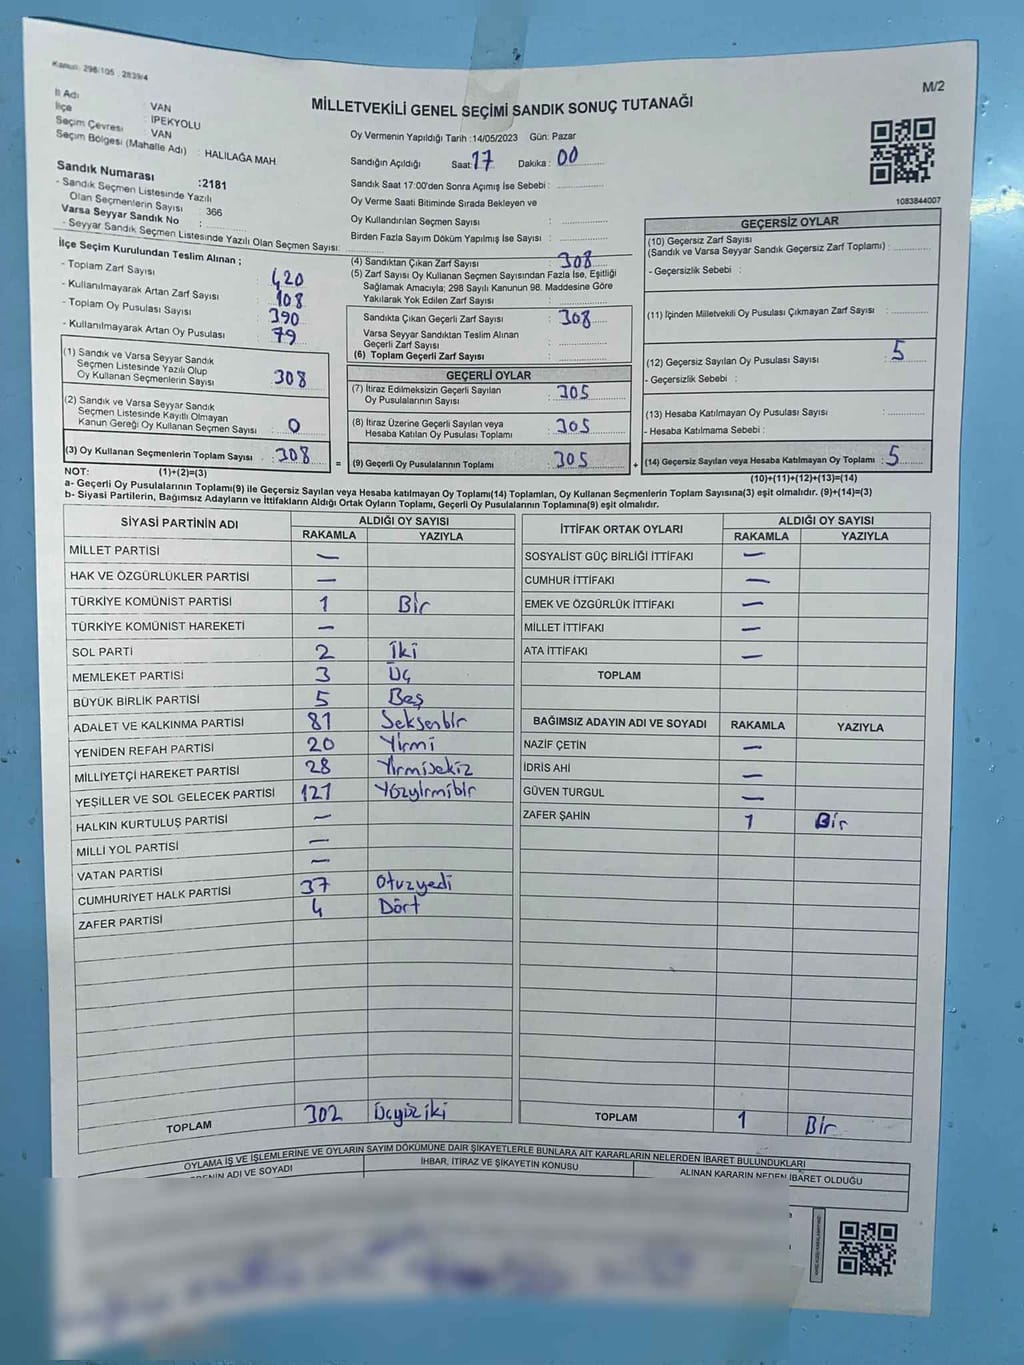 Kanun: 298/105 - 2839/4
M/2
MİLLETVEKİLİ GENEL SEÇİMİ SANDIK SONUÇ TUTANAĞI
İl Adı : VAN
İlçe : İPEKYOLU
Seçim Çevresi : VAN
Seçim Bölgesi (Mahalle Adı) : HALİLAĞA MAH
Sandık Numarası :2181
- Sandık Seçmen Listesinde Yazılı
Olan Seçmenlerin Sayısı : 366
Varsa Seyyar Sandık No :
- Seyyar Sandık Seçmen Listesinde Yazılı Olan Seçmen Sayısı:
Oy Vermenin Yapıldığı Tarih :14/05/2023 Gün: Pazar
Sandığın Açıldığı Saat: 17 Dakika : 00
Sandık Saat 17:00'den Sonra Açımış İse Sebebi :
Oy Verme Saati Bitiminde Sırada Bekleyen ve
Oy Kullandırılan Seçmen Sayısı :
Birden Fazla Sayım Döküm Yapılmış İse Sayısı :
1083844007
İlçe Seçim Kurulundan Teslim Alınan ;
- Toplam Zarf Sayısı : 420
- Kullanılmayarak Artan Zarf Sayısı : 108
- Toplam Oy Pusulası Sayısı : 390
- Kullanılmayarak Artan Oy Pusulası : 79
(1) Sandık ve Varsa Seyyar Sandık
Seçmen Listesinde Yazılı Olup
Oy Kullanan Seçmenlerin Sayısı : 308
(2) Sandık ve Varsa Seyyar Sandık
Seçmen Listesinde Kayıtlı Olmayan
Kanun Gereği Oy Kullanan Seçmen Sayısı : 0
(3) Oy Kullanan Seçmenlerin Toplam Sayısı : 308
(4) Sandıktan Çıkan Zarf Sayısı : 308
(5) Zarf Sayısı Oy Kullanan Seçmen Sayısından Fazla İse, Eşitliği
Sağlamak Amacıyla; 298 Sayılı Kanunun 98. Maddesine Göre
Yakılarak Yok Edilen Zarf Sayısı :
Sandıkta Çıkan Geçerli Zarf Sayısı : 308
Varsa Seyyar Sandıktan Teslim Alınan
Geçerli Zarf Sayısı :
(6) Toplam Geçerli Zarf Sayısı :
GEÇERLİ OYLAR
(7) İtiraz Edilmeksizin Geçerli Sayılan
Oy Pusulalarının Sayısı : 305
(8) İtiraz Üzerine Geçerli Sayılan veya
Hesaba Katılan Oy Pusulası Toplamı : 305
= (9) Geçerli Oy Pusulalarının Toplamı : 305 +
GEÇERSİZ OYLAR
(10) Geçersiz Zarf Sayısı
(Sandık ve Varsa Seyyar Sandık Geçersiz Zarf Toplamı) :
- Geçersizlik Sebebi :
(11) İçinden Milletvekili Oy Pusulası Çıkmayan Zarf Sayısı :
(12) Geçersiz Sayılan Oy Pusulası Sayısı : 5
- Geçersizlik Sebebi :
(13) Hesaba Katılmayan Oy Pusulası Sayısı :
- Hesaba Katılmama Sebebi :
(14) Geçersiz Sayılan veya Hesaba Katılmayan Oy Toplamı : 5
NOT: (1)+(2)=(3) (10)+(11)+(12)+(13)=(14)
a- Geçerli Oy Pusulalarının Toplamı(9) ile Geçersiz Sayılan veya Hesaba katılmayan Oy Toplamı(14) Toplamları, Oy Kullanan Seçmenlerin Toplam Sayısına(3) eşit olmalıdır. (9)+(14)=(3)
b- Siyasi Partilerin, Bağımsız Adayların ve İttifakların Aldığı Ortak Oyların Toplamı, Geçerli Oy Pusulalarının Toplamına(9) eşit olmalıdır.
SİYASİ PARTİNİN ADI ALDIĞI OY SAYISI
RAKAMLA YAZIYLA
MİLLET PARTİSİ —
HAK VE ÖZGÜRLÜKLER PARTİSİ —
TÜRKİYE KOMÜNİST PARTİSİ 1 Bir
TÜRKİYE KOMÜNİST HAREKETİ —
SOL PARTİ 2 İki
MEMLEKET PARTİSİ 3 Üç
BÜYÜK BİRLİK PARTİSİ 5 Beş
ADALET VE KALKINMA PARTİSİ 81 Seksenbir
YENİDEN REFAH PARTİSİ 20 Yirmi
MİLLİYETÇİ HAREKET PARTİSİ 28 Yirmisekiz
YEŞİLLER VE SOL GELECEK PARTİSİ 121 Yüzyirmibir
HALKIN KURTULUŞ PARTİSİ —
MİLLİ YOL PARTİSİ —
VATAN PARTİSİ —
CUMHURİYET HALK PARTİSİ 37 Otuzyedi
ZAFER PARTİSİ 4 Dört
TOPLAM 302 Üçyüz iki
İTTİFAK ORTAK OYLARI ALDIĞI OY SAYISI
RAKAMLA YAZIYLA
SOSYALİST GÜÇ BİRLİĞİ İTTİFAKI —
CUMHUR İTTİFAKI —
EMEK VE ÖZGÜRLÜK İTTİFAKI —
MİLLET İTTİFAKI —
ATA İTTİFAKI —
TOPLAM
BAĞIMSIZ ADAYIN ADI VE SOYADI RAKAMLA YAZIYLA
NAZİF ÇETİN —
İDRİS AHİ —
GÜVEN TURGUL —
ZAFER ŞAHİN 1 Bir
TOPLAM 1 Bir
OYLAMA İŞ VE İŞLEMLERİNE VE OYLARIN SAYIM DÖKÜMÜNE DAİR ŞİKAYETLERLE BUNLARA AİT KARARLARIN NELERDEN İBARET BULUNDUKLARI
ADI VE SOYADI İHBAR, İTİRAZ VE ŞİKAYETİN KONUSU ALINAN KARARIN NEDEN İBARET OLDUĞU